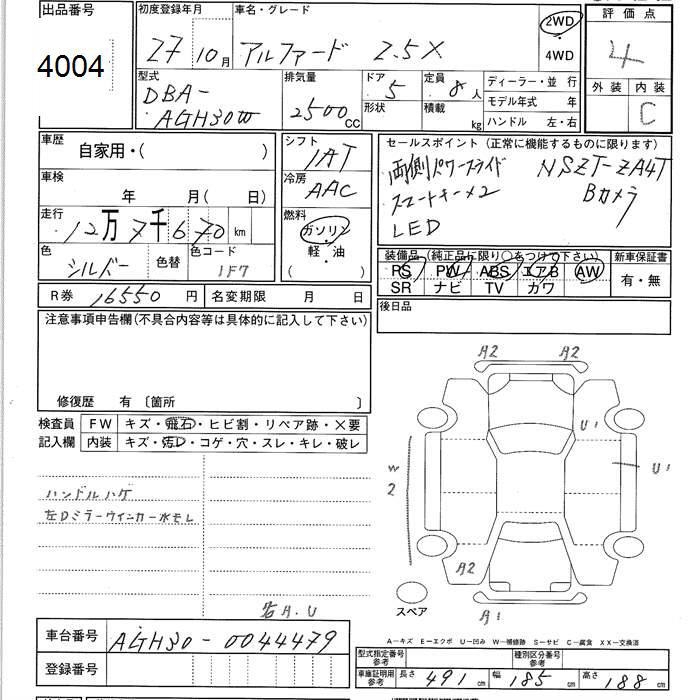 出品番号
4004
初度登録年月
27 10月
車名・グレード
アルファード 2.5X
2WD
4WD
評価点
4
外装 内装
C
型式
DBA-
AGH30W
排気量
2500cc
ドア
5
形状
定員
8人
積載
kg
ディーラー・並 行
モデル年式 年
ハンドル 左・右
車歴
自家用・( )
車検
年 月( 日)
走行
12万7千670km
色
シルバー
色替
色コード
1F7
シフト
IAT
冷房
AAC
燃料
ガソリン
軽・油
( )
セールスポイント(正常に機能するものに限ります)
両側パワースライド NSZT-ZA4T
スマートキー×2 Bカメラ
LED
装備品(純正品に限り○をつけ下さい)
PS PW ABS エアB AW
SR ナビ TV カワ
新車保証書
有・無
R券 16550円
名変期限 月 日
後日品
注意事項申告欄(不具合内容等は具体的に記入して下さい)
修復歴 有 〔箇所 〕
検査員
記入欄
FW キズ・飛石・ヒビ割・リペア跡・×要
内装 キズ・汚D・コゲ・穴・スレ・キレ・破レ
ハンドルハゲ
左Dミラーウインカー水モレ
各A.U
A2 A2
U1
U1
W
2
A2
A1
スペア
A-キズ E-エクボ U-凹み W-補修跡 S-サビ C-腐食 XX-交換済
車台番号 AGH30-0044479
登録番号
型式指定番号
参考
種別区分番号
参考
車庫証明用
参考
長さ 491cm 幅 185cm 高さ 188cm